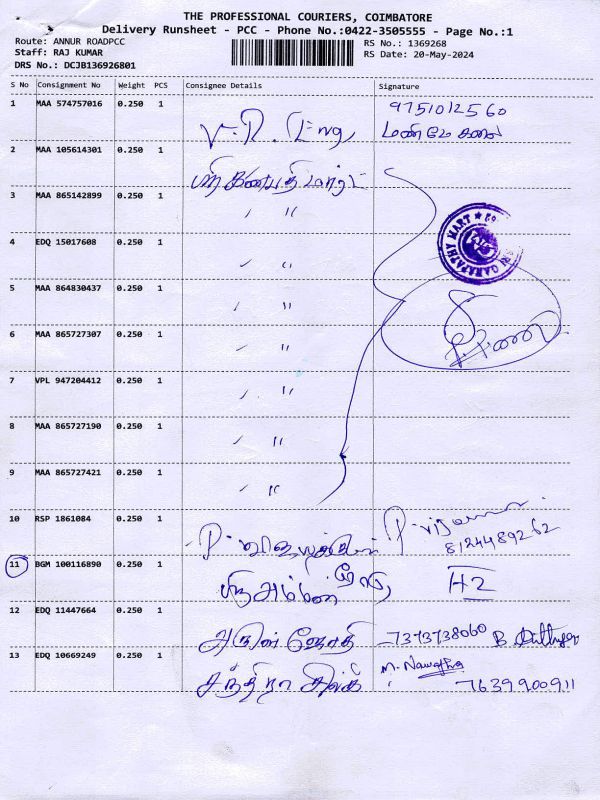 THE PROFESSIONAL COURIERS, COIMBATORE
Delivery Runsheet - PCC - Phone No.:0422-3505555 - Page No.:1
Route: ANNUR ROADPCC
RS No.: 1369268
Staff: RAJ KUMAR
RS Date: 20-May-2024
DRS No.: DCJB136926801
S No Consignment No Weight PCS Consignee Details Signature
1 MAA 574757016 0.250 1 V.R. Eng 9751012560
மணிமேகலை
2 MAA 105614301 0.250 1 ஸ்ரீ கணபதி மார்ட்
3 MAA 865142899 0.250 1 〃
4 EDQ 15017608 0.250 1 〃
5 MAA 864830437 0.250 1 〃
6 MAA 865727307 0.250 1 〃
7 VPL 947204412 0.250 1 〃
8 MAA 865727190 0.250 1 〃
9 MAA 865727421 0.250 1 〃
GANAPATHY MART
10 RSP 1861084 0.250 1 P. 8124489262
11 BGM 100116890 0.250 1 H2
12 EDQ 11447664 0.250 1 அருள் ஜோதி 7373738060 B
13 EDQ 10669249 0.250 1 M. 7639900911